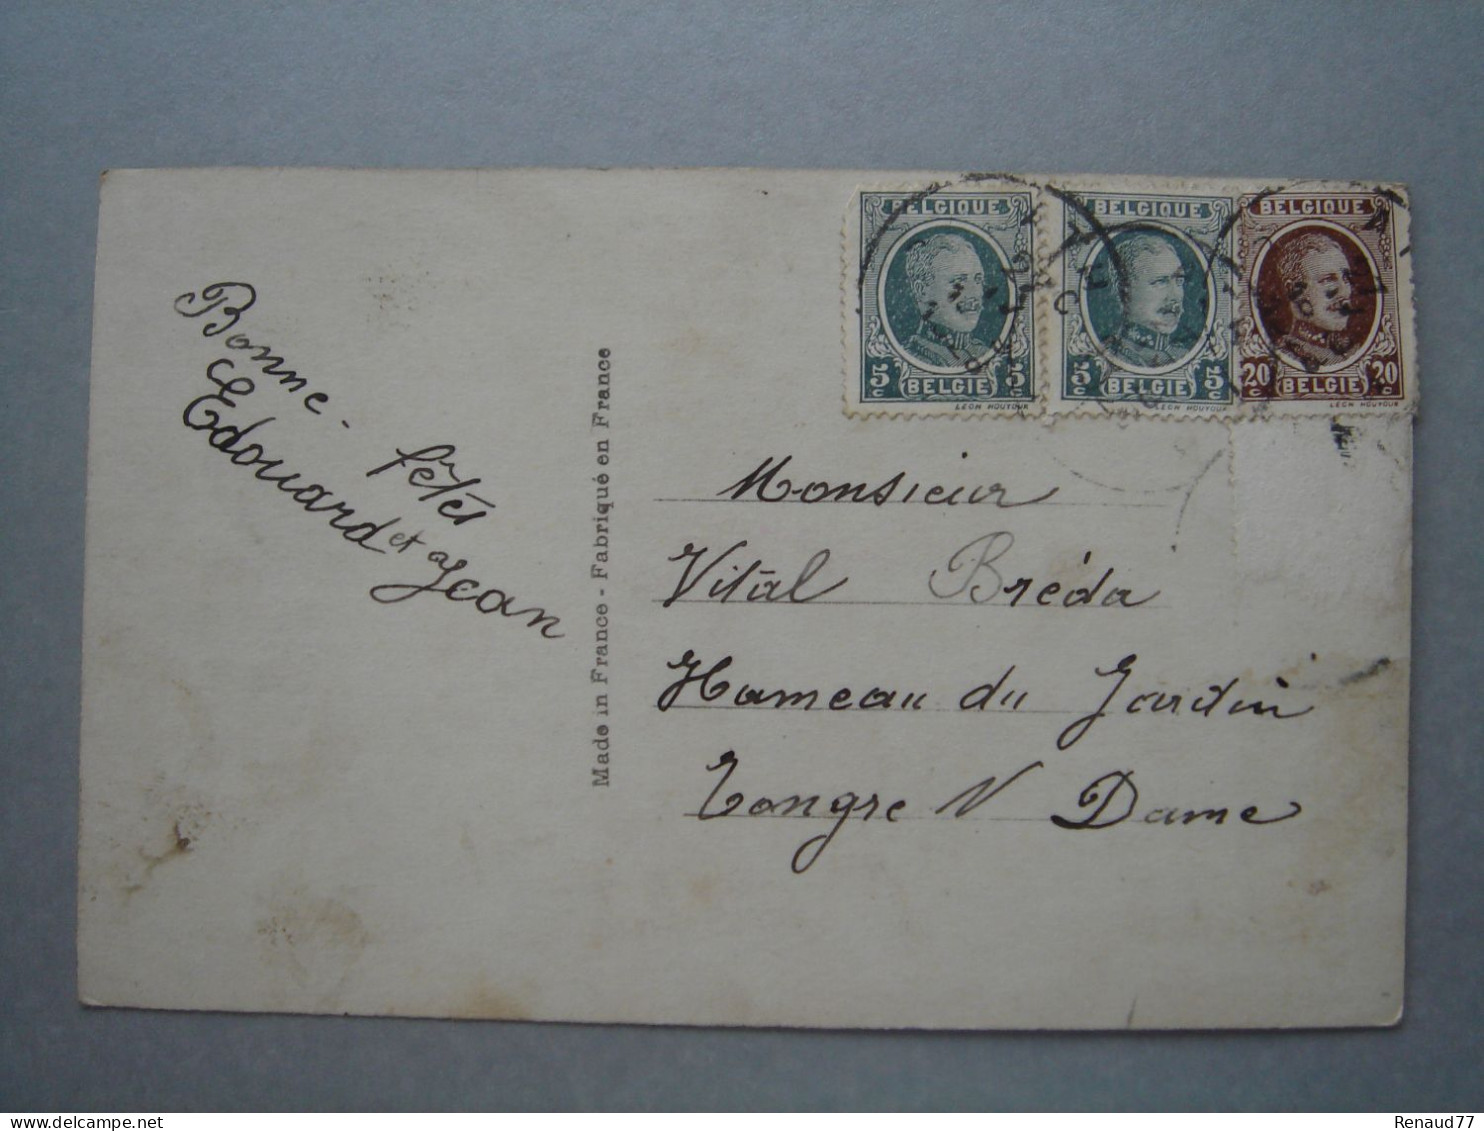 BELGIQUE BELGIQUE BELGIQUE
5c 5c 5c 5c 20c 20c
BELGIE BELGIE BELGIE
LEON HOUYOUX LEON HOUYOUX LEON HOUYOUX
Bonne fêtes
Edouard et Jean
Made in France - Fabriqué en France
Monsieur
Vital Bréda
Hameau du Jardin
Tongre N Dame
Renaud77